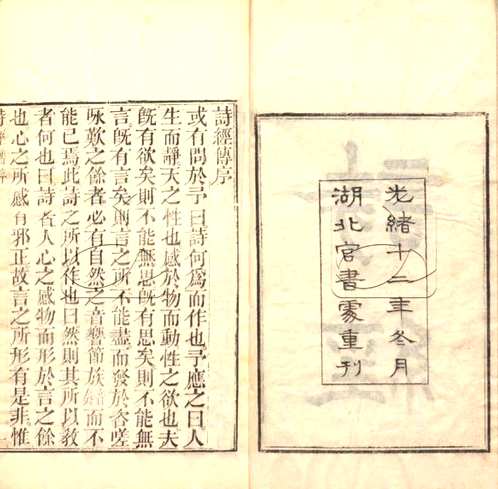 光緒十二年冬月
湖北官書處重刊
詩經傳序
或有問於予曰詩何爲而作也予應之曰人
生而靜天之性也感於物而動性之欲也夫
旣有欲矣則不能無思旣有思矣則不能無
言旣有言矣則言之所不能盡而發於咨嗟
咏歎之餘者必有自然之音響節族而不
能已焉此詩之所以作也曰然則其所以敎
者何也曰詩者人心之感物而形於言之餘
也心之所感有邪正故言之所形有是非惟